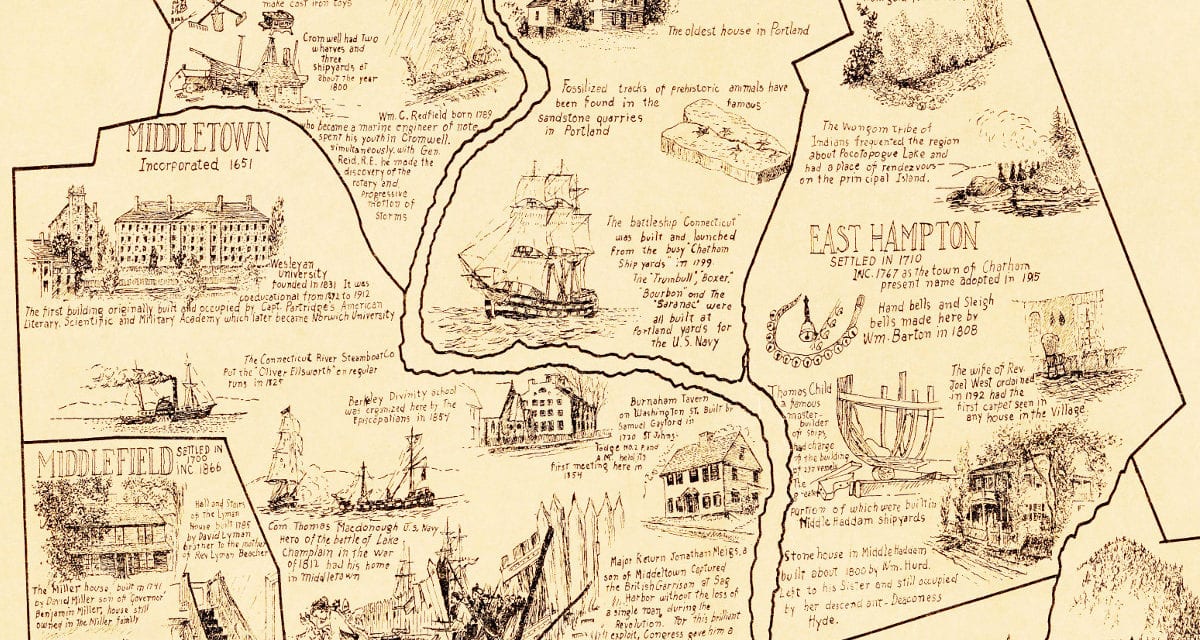 make cast iron toys
Cromwell had Two
wharves and
Three
shipyards at
about the year
1800
Wm. C. Redfield born 1789
who became a marine engineer of note
spent his youth in Cromwell.
simultaneously with Gen.
Reid, R.E. he made the
discovery of the
rotary and
progressive
motion of
storms
The oldest house in Portland
Fossilized tracks of prehistoric animals have
been found in the famous
sandstone quarries
in Portland
The Wangom Tribe of
Indians frequented the region
about Pocotopogue Lake and
had a place of rendezvous
on the principal Island.
MIDDLETOWN
Incorporated 1651
Wesleyan
university
founded in 1831 It was
coeducational from 1872 to 1912
The first building originally built and occupied by Capt. Partridge's American
Literary, Scientific and Military Academy which later became Norwich University
The battleship Connecticut"
was built and launched
from the busy "Chatham
Ship yards" in 1799
The "Trumbull", "Boxer",
"Bourbon" and The
"Saranac" were
all built at
Portland yards for
the U.S. Navy
EAST HAMPTON
SETTLED IN 1710
INC. 1767 as the town of Chatham
present name adopted in 195
Hand bells and Sleigh
bells made here by
Wm. Barton in 1808
The wife of Rev.
Joel West ordained
in 1792 had the
first carpet seen in
any house in the Village
The Connecticut River Steamboat Co
Put the "Oliver Ellsworth" on regular
runs in
Berkeley Divinity school
was organized here by the
Episcopalians in 1857
Burnaham Tavern
on Washington St. Built by
Samuel Gaylord in
1720 St Johns.
Lodge No. 2 F. and
A.M. held its
first meeting here in
Thomas Child
a famous
master-
builder
of ships
had charge
of the building
of 237 vessels
portion of which were built in
Middle Haddam Shipyards
MIDDLEFIELD
SETTLED IN
1700
INC 1866
Hall and Stairs
of the Lyman
House built 1785
by David Lyman
brother to the mother
of Rev Lyman Beecher
The Miller house, built in 1741
by David Miller son of Governor
Benjamin Miller, house still
owned in the Miller family
Com. Thomas Macdonough U.S. Navy
Hero of the battle of Lake
Champlain in the war
of 1812 had his home
in Middletown
Major Return Jonathan Meigs, a
son of Middletown captured
the British Garrison at Sag
Harbor without the loss of
a single man, during the
Revolution. For this brilliant
exploit, Congress gave him a
Stone house in Middle Haddam
built about 1800 by Wm. Hurd.
Left to his Sister and still occupied
by her descendant - Deaconess
Hyde.